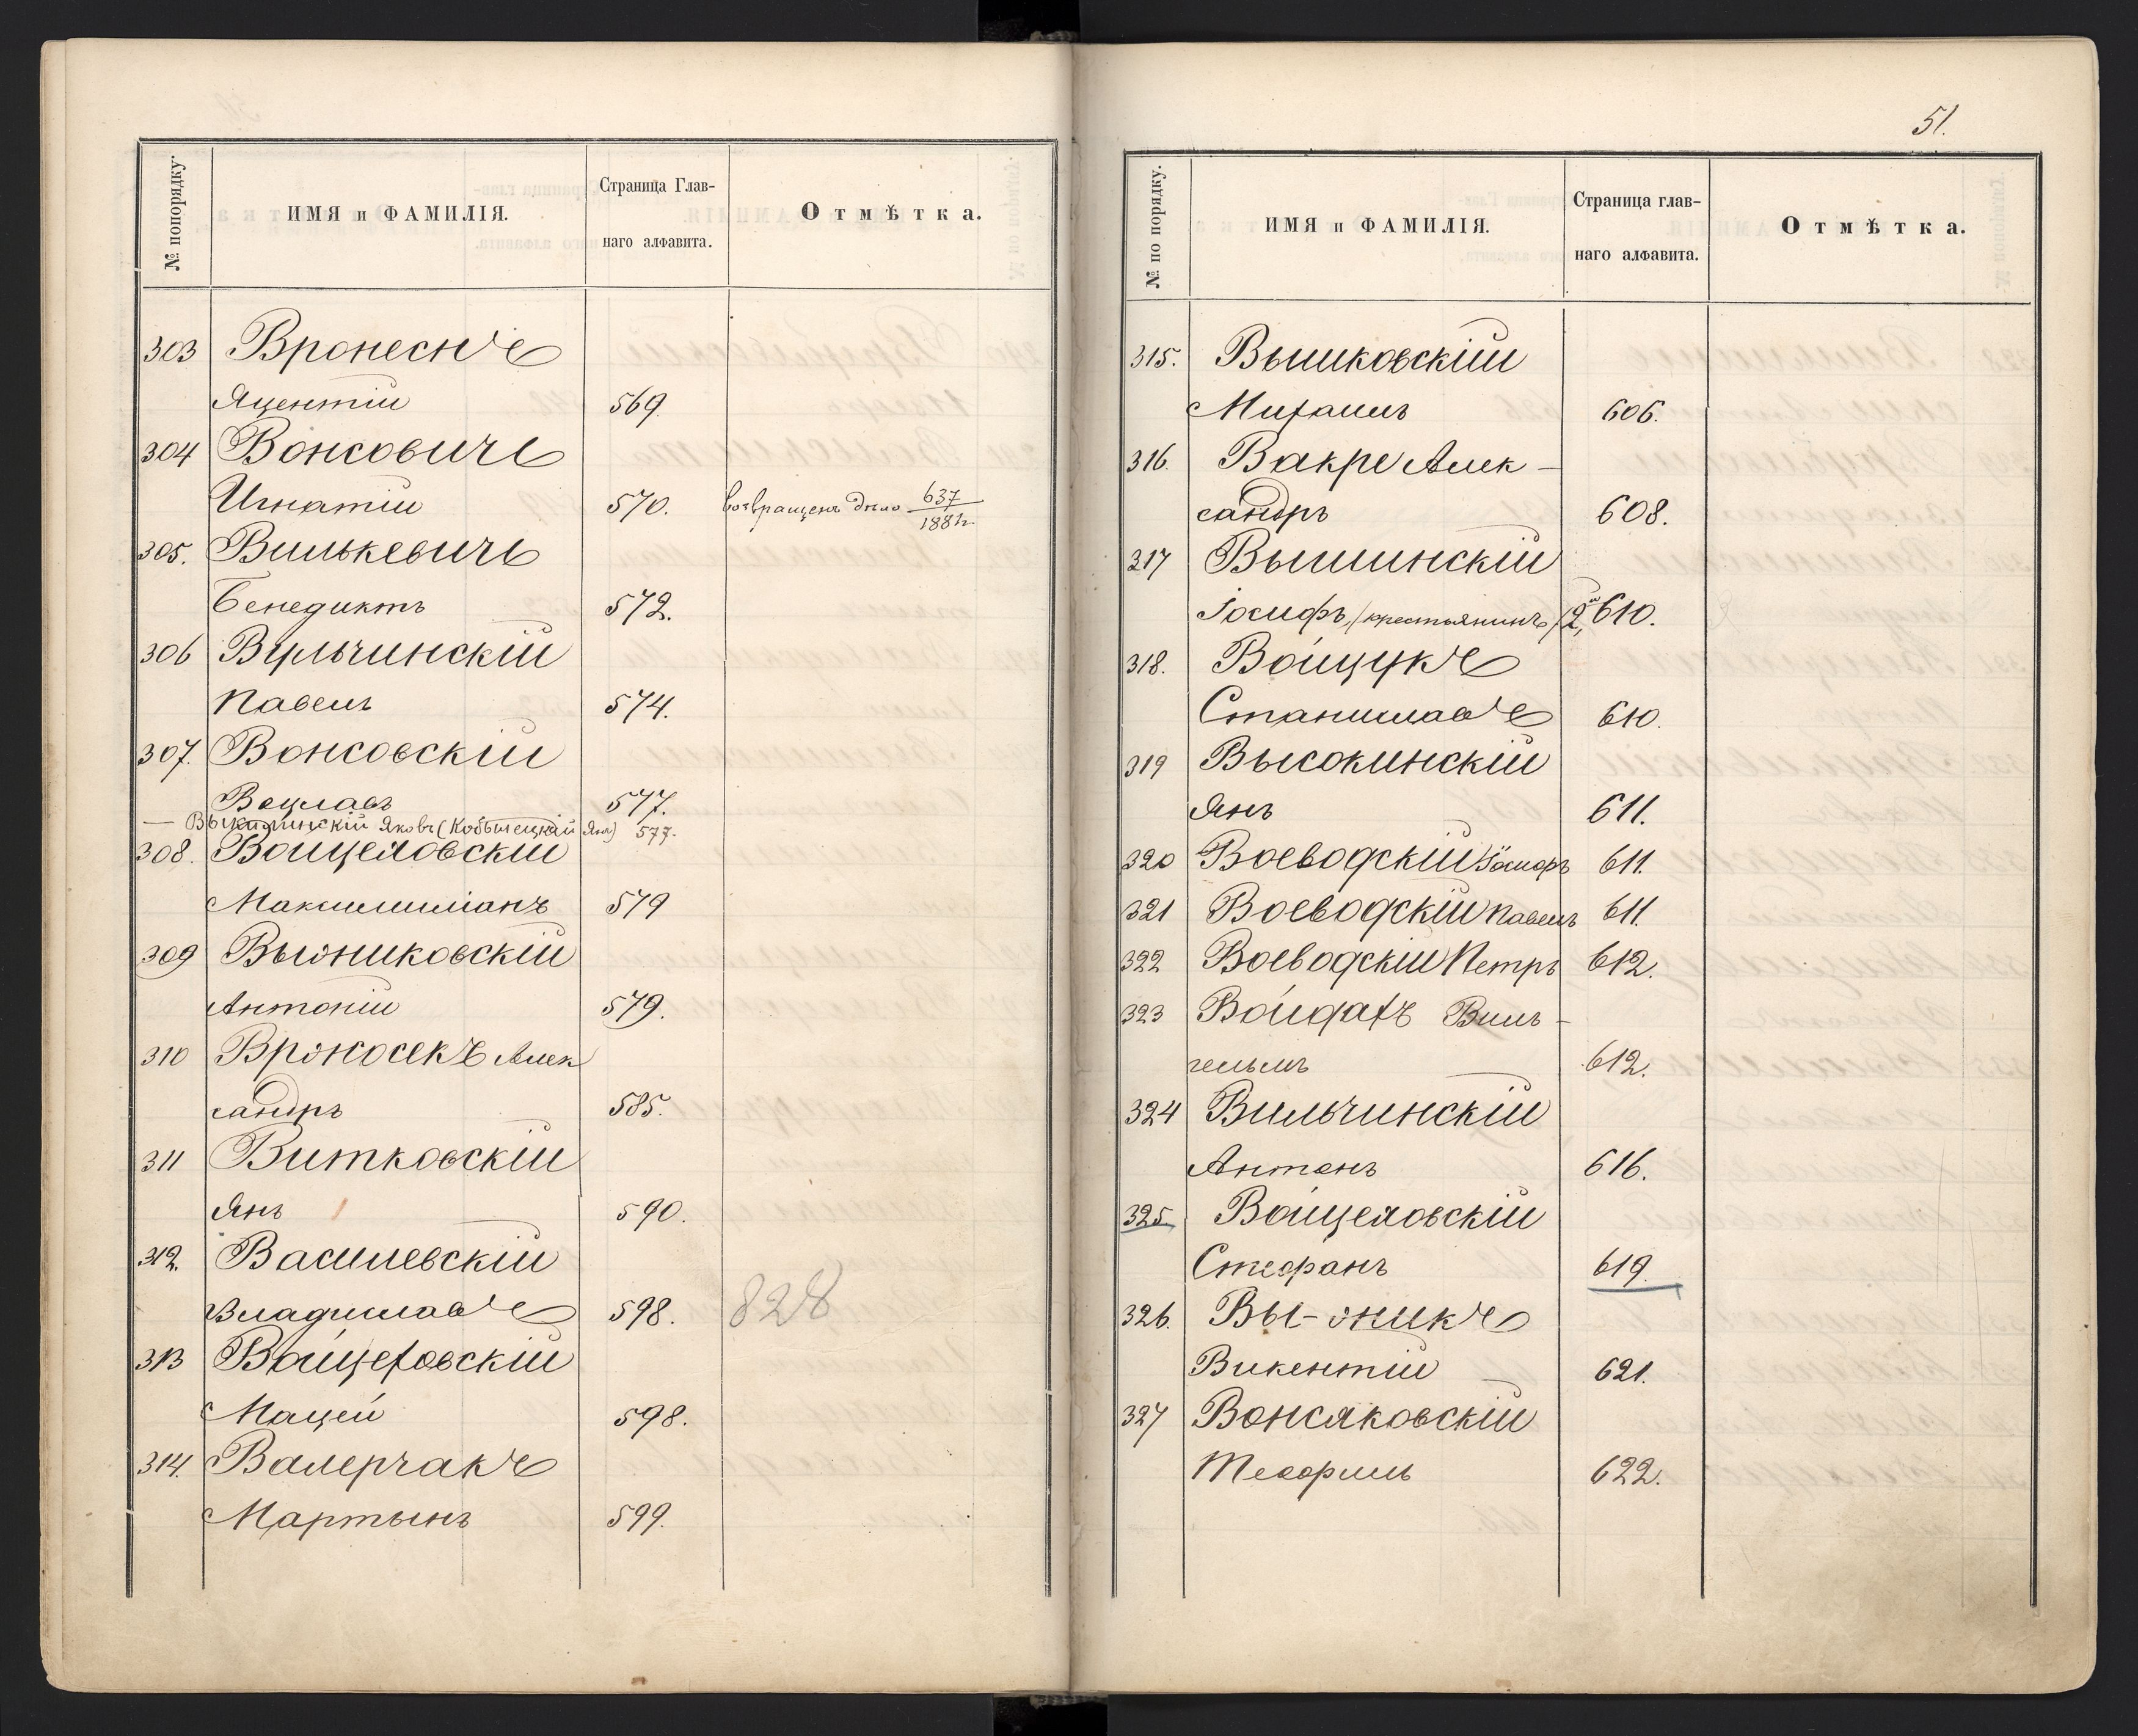 № попорядку.
ИМЯ и ФАМИЛІЯ.
Страница Глав-
наго алфавита.
Отмѣтка.
303 Вронеснъ
Яцентій 569.
304 Вонсовичъ
Игнатій 570. возвращенъ дѣло 637/1881 г.
305. Вилькевичъ
Бенедиктъ 572.
306 Вульчинскій
Павелъ 574.
307. Вонсовскій
Вацлавъ 577.
— Яковъ (Кобылецкій Янъ) 577.
308. Войцеховскій
Максимиліанъ 579
309 Выжниковскій
Антоній 579.
310 Вржосекъ Алек
сандръ 585.
311 Витковскій
Янъ 590.
312. Василевскій
Владиславъ 598. 828
313 Войцеховскій
Мацей 598.
314. Валерчакъ
Мартынъ 599.
51.
№ по порядку.
ИМЯ и ФАМИЛІЯ.
Страница глав-
наго алфавита.
Отмѣтка.
315. Вышковскій
Михаилъ 606.
316. Вакре Алек-
сандръ 608.
317 Вышинскій
Іосифъ (крестьянинъ) 610.
318. Войцукъ
Станиславъ 610.
319 Высокинскій
Янъ 611.
320 Воеводскій Іосифъ 611.
321 Воеводскій Павелъ 611.
322 Воеводскій Петръ 612.
323 Войдатъ Виль-
гельмъ 612.
324 Вильчинскій
Антонъ 616.
325. Войцеховскій
Стефанъ 619.
326. Вы-жникъ
Викентій 621.
327 Вонсяковскій
Теофилъ 622.